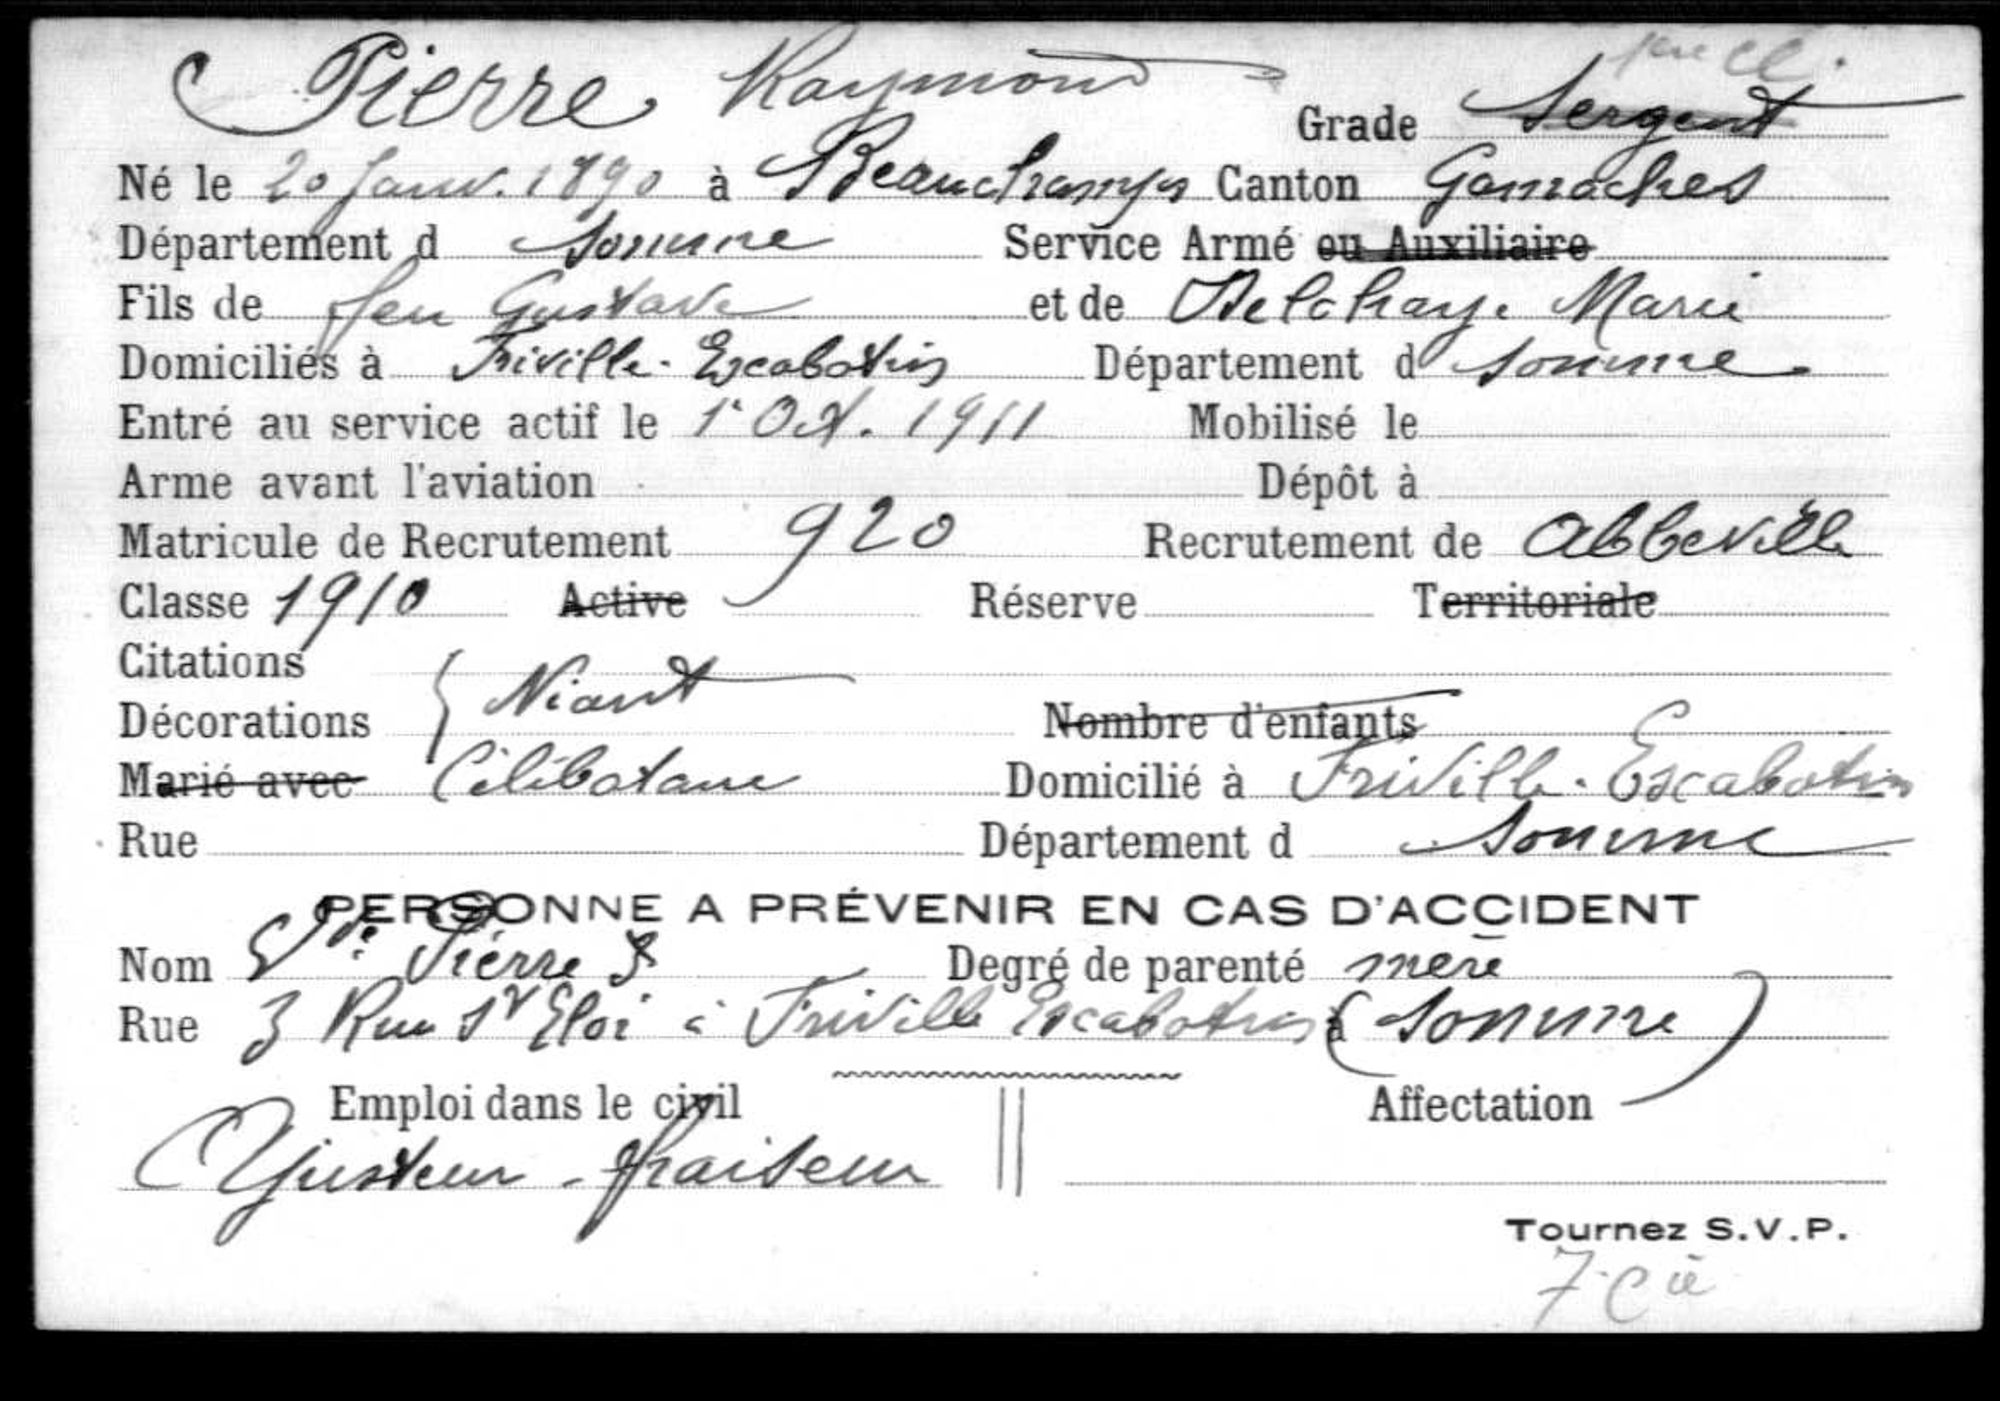 Pierre Raymond
1ère Cl.
Grade Sergent
Né le 20 Janv. 1890 à Beauchamps Canton Gamaches
Département d Somme Service Armé ou Auxiliaire
Fils de feu Gustave et de Delahaye Marie
Domiciliés à Friville-Escabotin Département d Somme
Entré au service actif le 1er Oct. 1911 Mobilisé le
Arme avant l'aviation Dépôt à
Matricule de Recrutement 920 Recrutement de Abbeville
Classe 1910 Active Réserve Territoriale
Citations
Décorations } Néant Nombre d'enfants
Marié avec Célibataire Domicilié à Friville-Escabotin
Rue Département d Somme
PERSONNE A PRÉVENIR EN CAS D'ACCIDENT
Nom Vve Pierre Degré de parenté mère
Rue 3 Rue St Eloi à Friville Escabotin à (Somme)
Emploi dans le civil Affectation
Ajusteur - fraiseur
Tournez S.V.P.
7e Cie